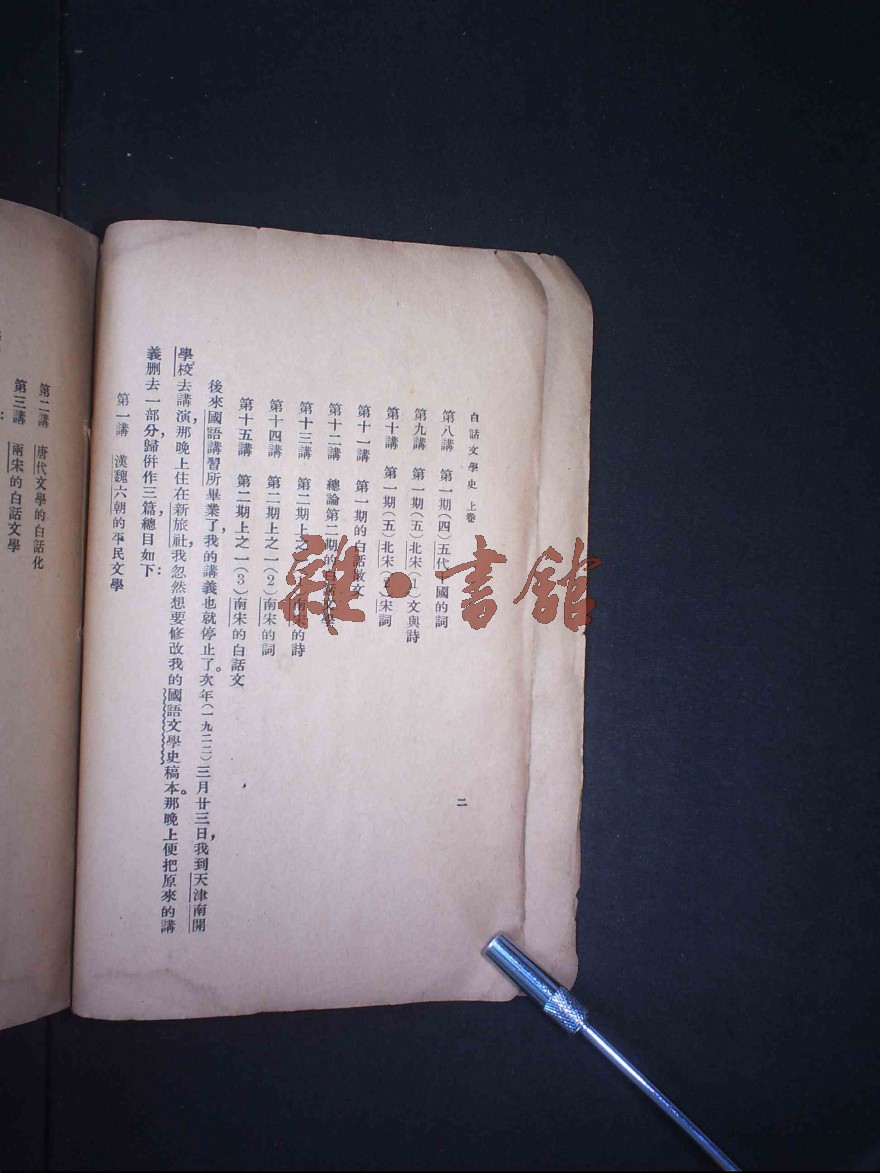 白話文學史 上卷
二
第八講 第一期(四)五代十國的詞
第九講 第一期(五)北宋(1)文與詩
第十講 第一期(五)北宋(2)宋詞
第十一講 第一期的白話散文
第十二講 總論第二期的白話文學
第十三講 第二期上之一(1)南宋的詩
第十四講 第二期上之一(2)南宋的詞
第十五講 第二期上之一(3)南宋的白話文
後來國語講習所畢業了,我的講義也就停止了。次年(一九二二)三月廿三日,我到天津南開
學校去講演,那晚上住在新旅社,我忽然想要修改我的國語文學史稿本。那晚上便把原來的講
義刪去一部分,歸併作三篇,總目如下:
第一講 漢魏六朝的平民文學
第二講 唐代文學的白話化
第三講 兩宋的白話文學
雜·書館